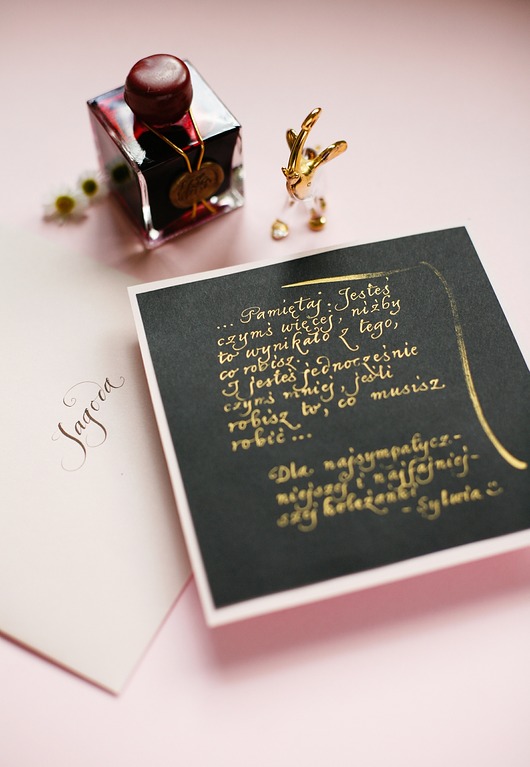 ... Pamiętaj: Jesteś
czymś więcej, niżby
to wynikało z tego,
co robisz.
I jesteś jednocześnie
czymś mniej, jeśli
robisz to, co musisz
robić ...
Dla najsympatycz-
niejszej i najfajniej-
szej koleżanki
- Sylwia
Jagoda